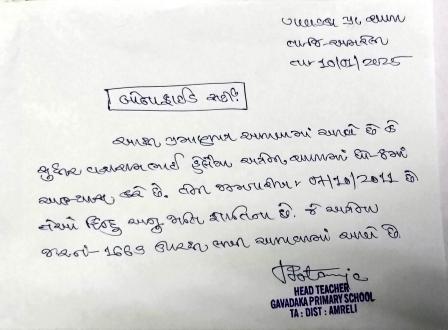 ગાવડકા પ્રા શાળા
તા.જિ-અમરેલી
તાઃ 10/01/2025
બોનાફાઈડ સર્ટી!
આથી પ્રમાણપત્ર આપવામાં આવે છે કે
ભાઈ અત્રેની શાળામાં ધો-
અભ્યાસ કરે છે. તેમની જન્મતારીખ 07/10/2011 છે
તેઓ હિન્દુ અનુ જાતિ છે. જે અત્રેના
1669 ઉપરથી આપવામાં આવે છે.
HEAD TEACHER
GAVADAKA PRIMARY SCHOOL
TA : DIST : AMRELI